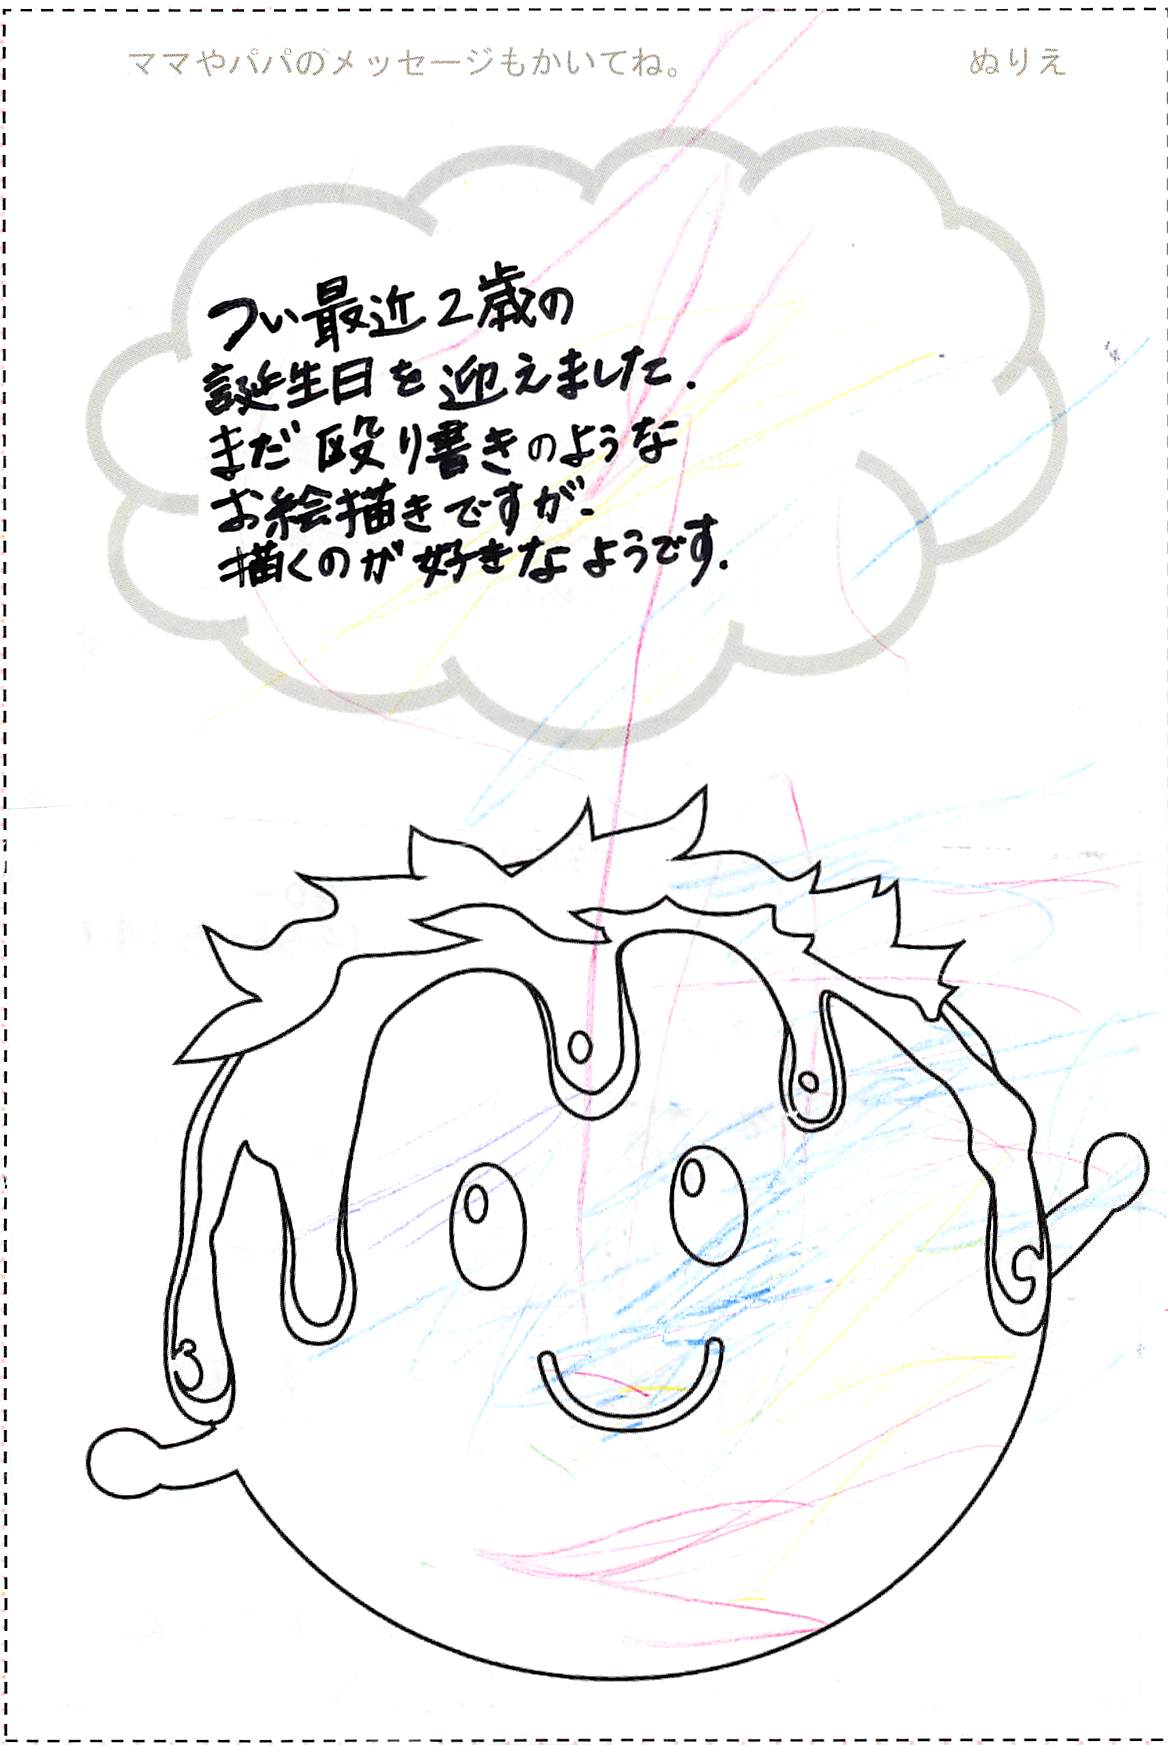 ママやパパのメッセージもかいてね。
ぬりえ
つい最近2歳の
誕生日を迎えました.
まだ殴り書きのような
お絵描きですが、
描くのが好きなようです.